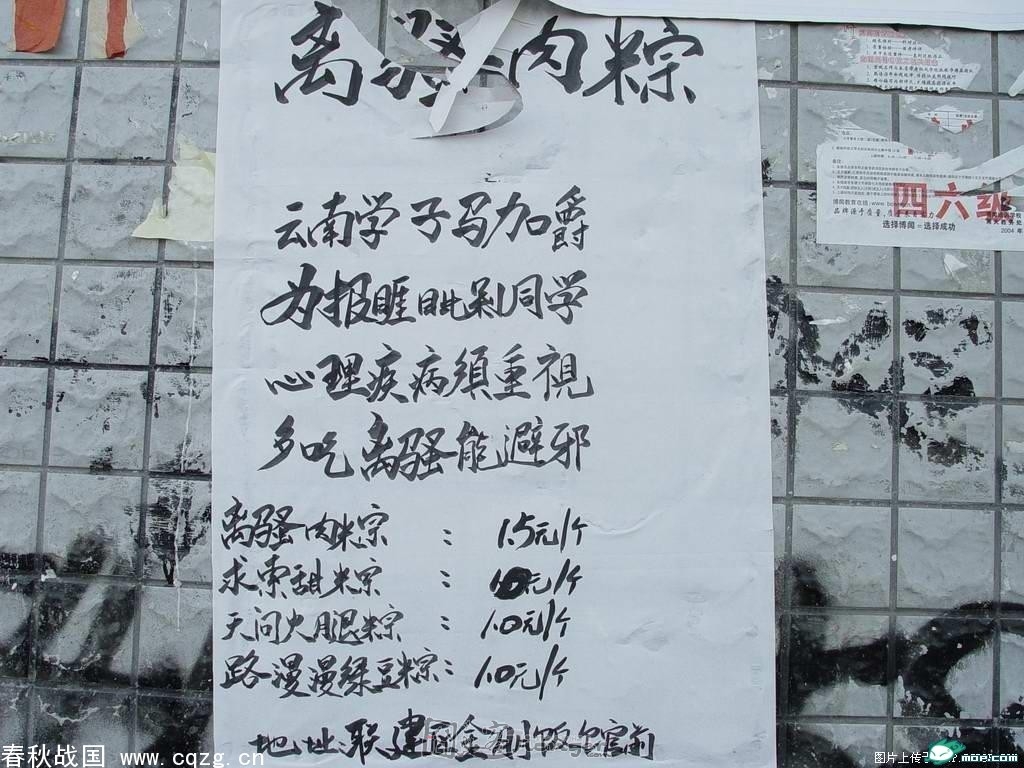 离骚肉粽
云南学子马加爵
为报睚眦剁同学
心理疾病須重視
多吃离骚能避邪
离骚肉粽 : 1.5元/个
求索甜粽 : 1.0元/个
天问火腿粽 : 1.0元/个
路漫漫绿豆粽: 1.0元/个
地址:联建
前
四六级
品牌源于质量,
选择博闻=选择成功
2004年
春秋战国 - www.cqzg.cn
图片上传于